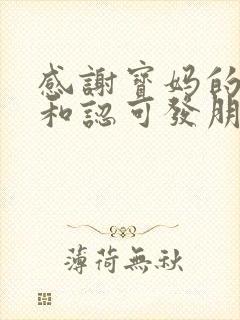 感謝寶媽的
和認可發朋
薄荷無秋